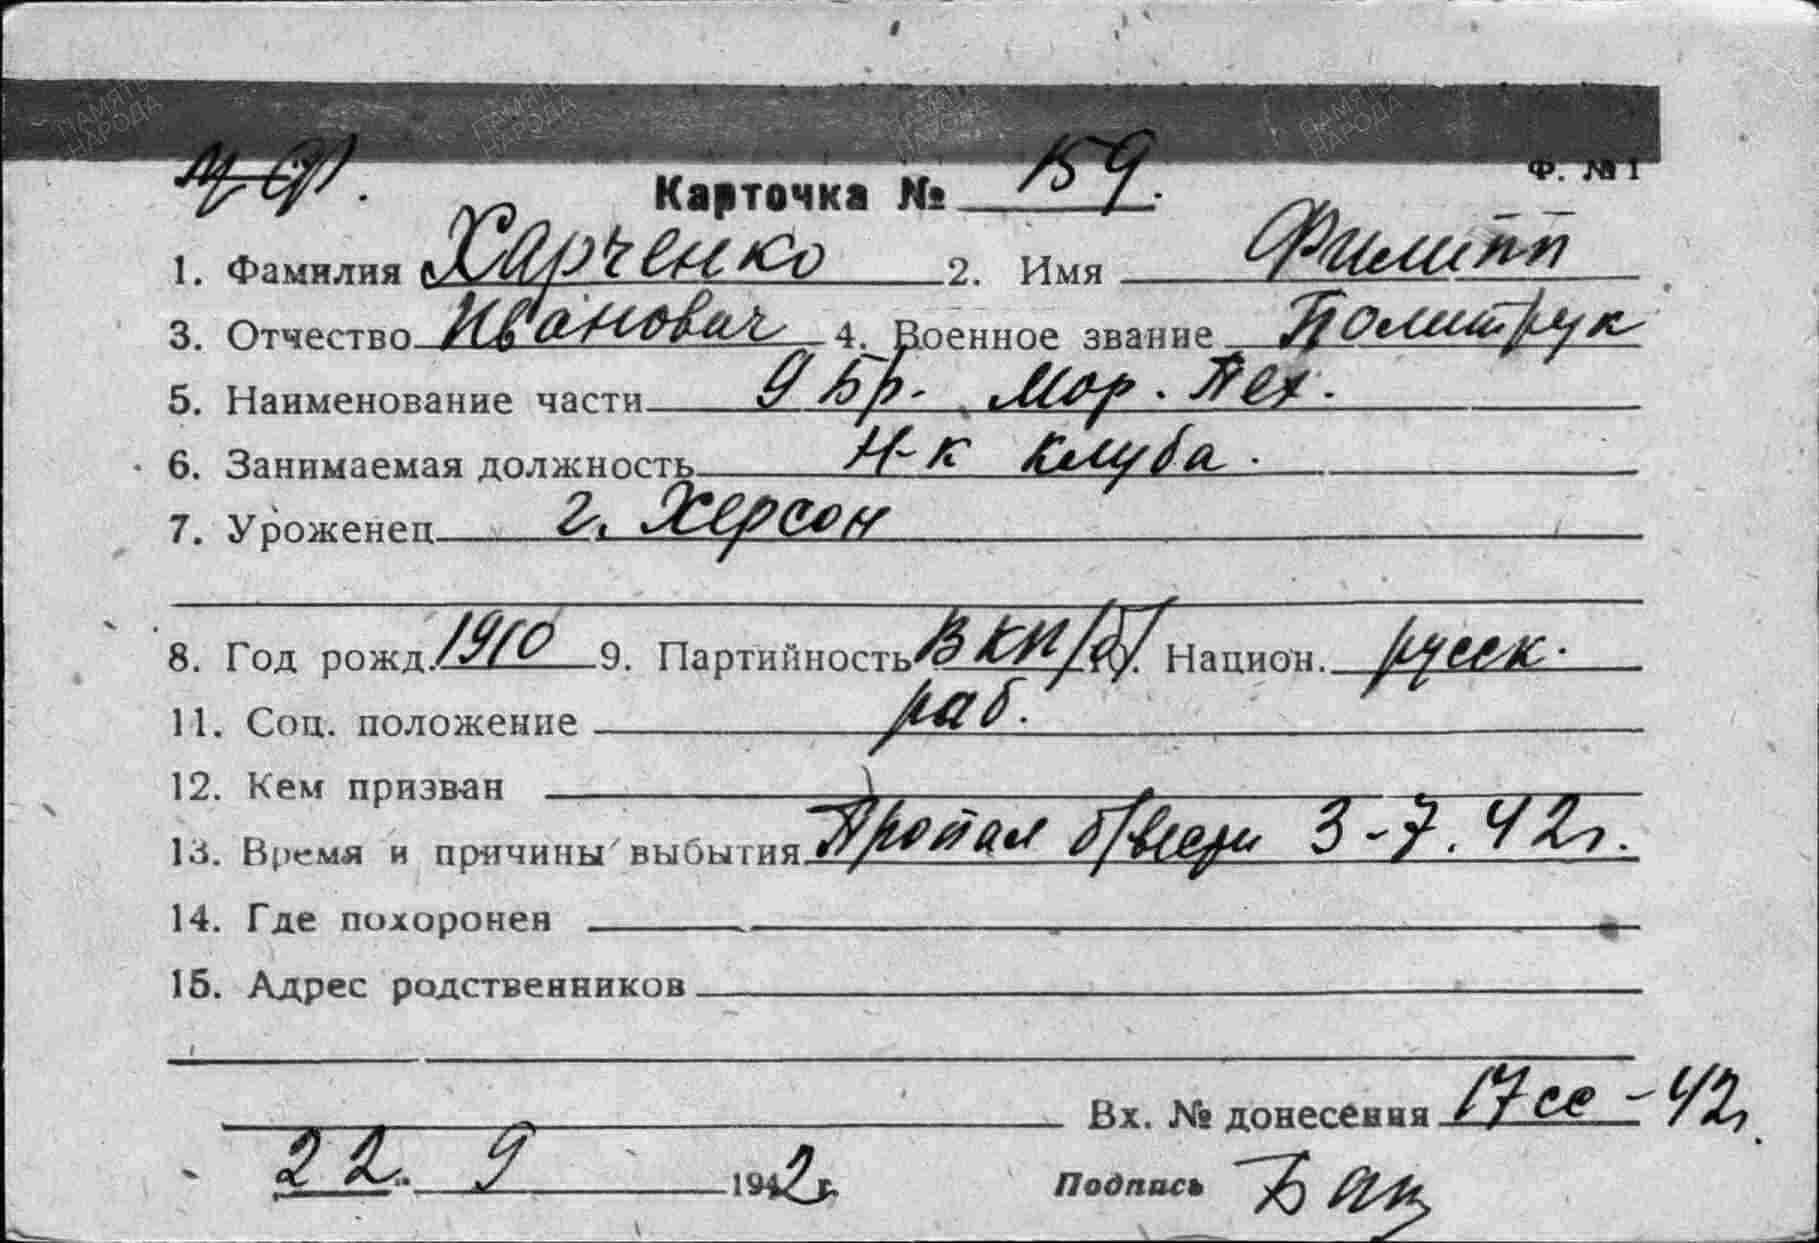 ПАМЯТЬ НАРОДА ПАМЯТЬ НАРОДА ПАМЯТЬ НАРОДА ПАМЯТЬ НАРОДА
Ф. № 1
Карточка № 159.
1. Фамилия Харченко 2. Имя Филипп
3. Отчество Иванович 4. Военное звание Политрук
5. Наименование части 9 Бр. Мор. Пех.
6. Занимаемая должность Н-к клуба.
7. Уроженец г. Херсон
8. Год рожд. 1910 9. Партийность ВКП/б/ Национ. русск.
11. Соц. положение раб.
12. Кем призван
13. Время и причины выбытия Пропал б/вести 3-7.42г.
14. Где похоронен
15. Адрес родственников
Вх. № донесения 17сс-42г.
22. 9 1942 г. Подпись